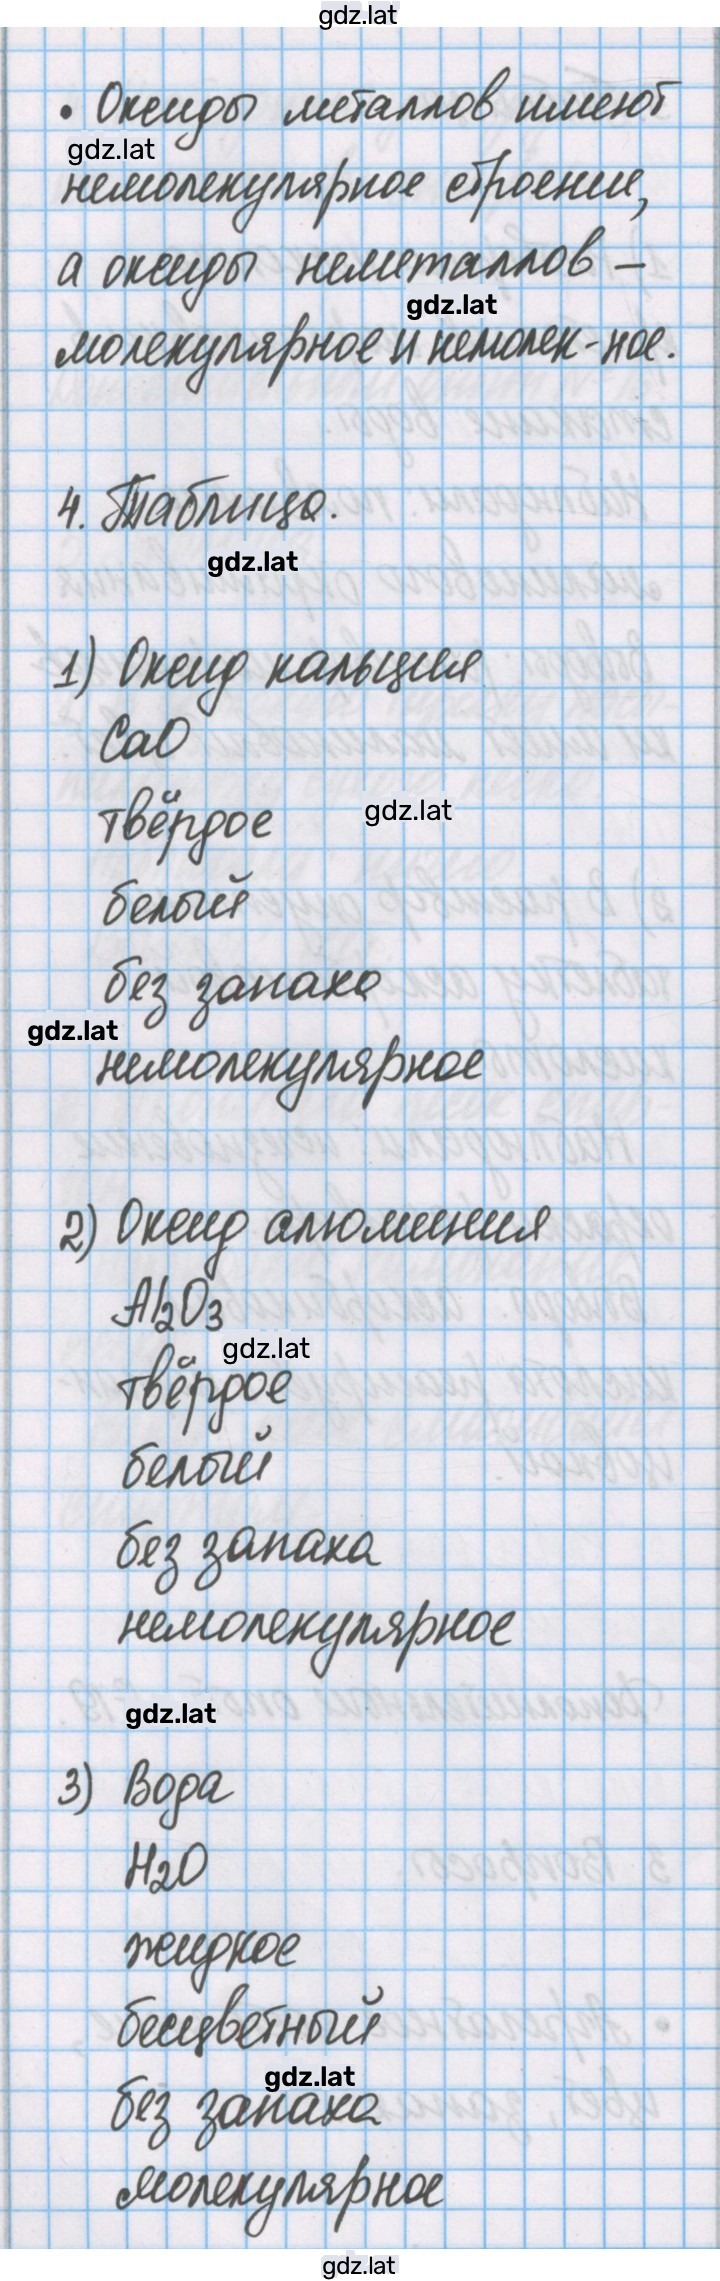 gdz.lat
• Оксиды металлов имеют
gdz.lat
немолекулярное строение,
а оксиды неметаллов –
gdz.lat
молекулярное и немолек-ное.
4. Таблица.
gdz.lat
1) Оксид кальция
CaO
твёрдое
gdz.lat
белый
без запаха
gdz.lat
немолекулярное
2) Оксид алюминия
Al2O3
gdz.lat
твёрдое
белый
без запаха
немолекулярное
gdz.lat
3) Вода
H2O
жидкое
бесцветный
gdz.lat
без запаха
молекулярное
gdz.lat